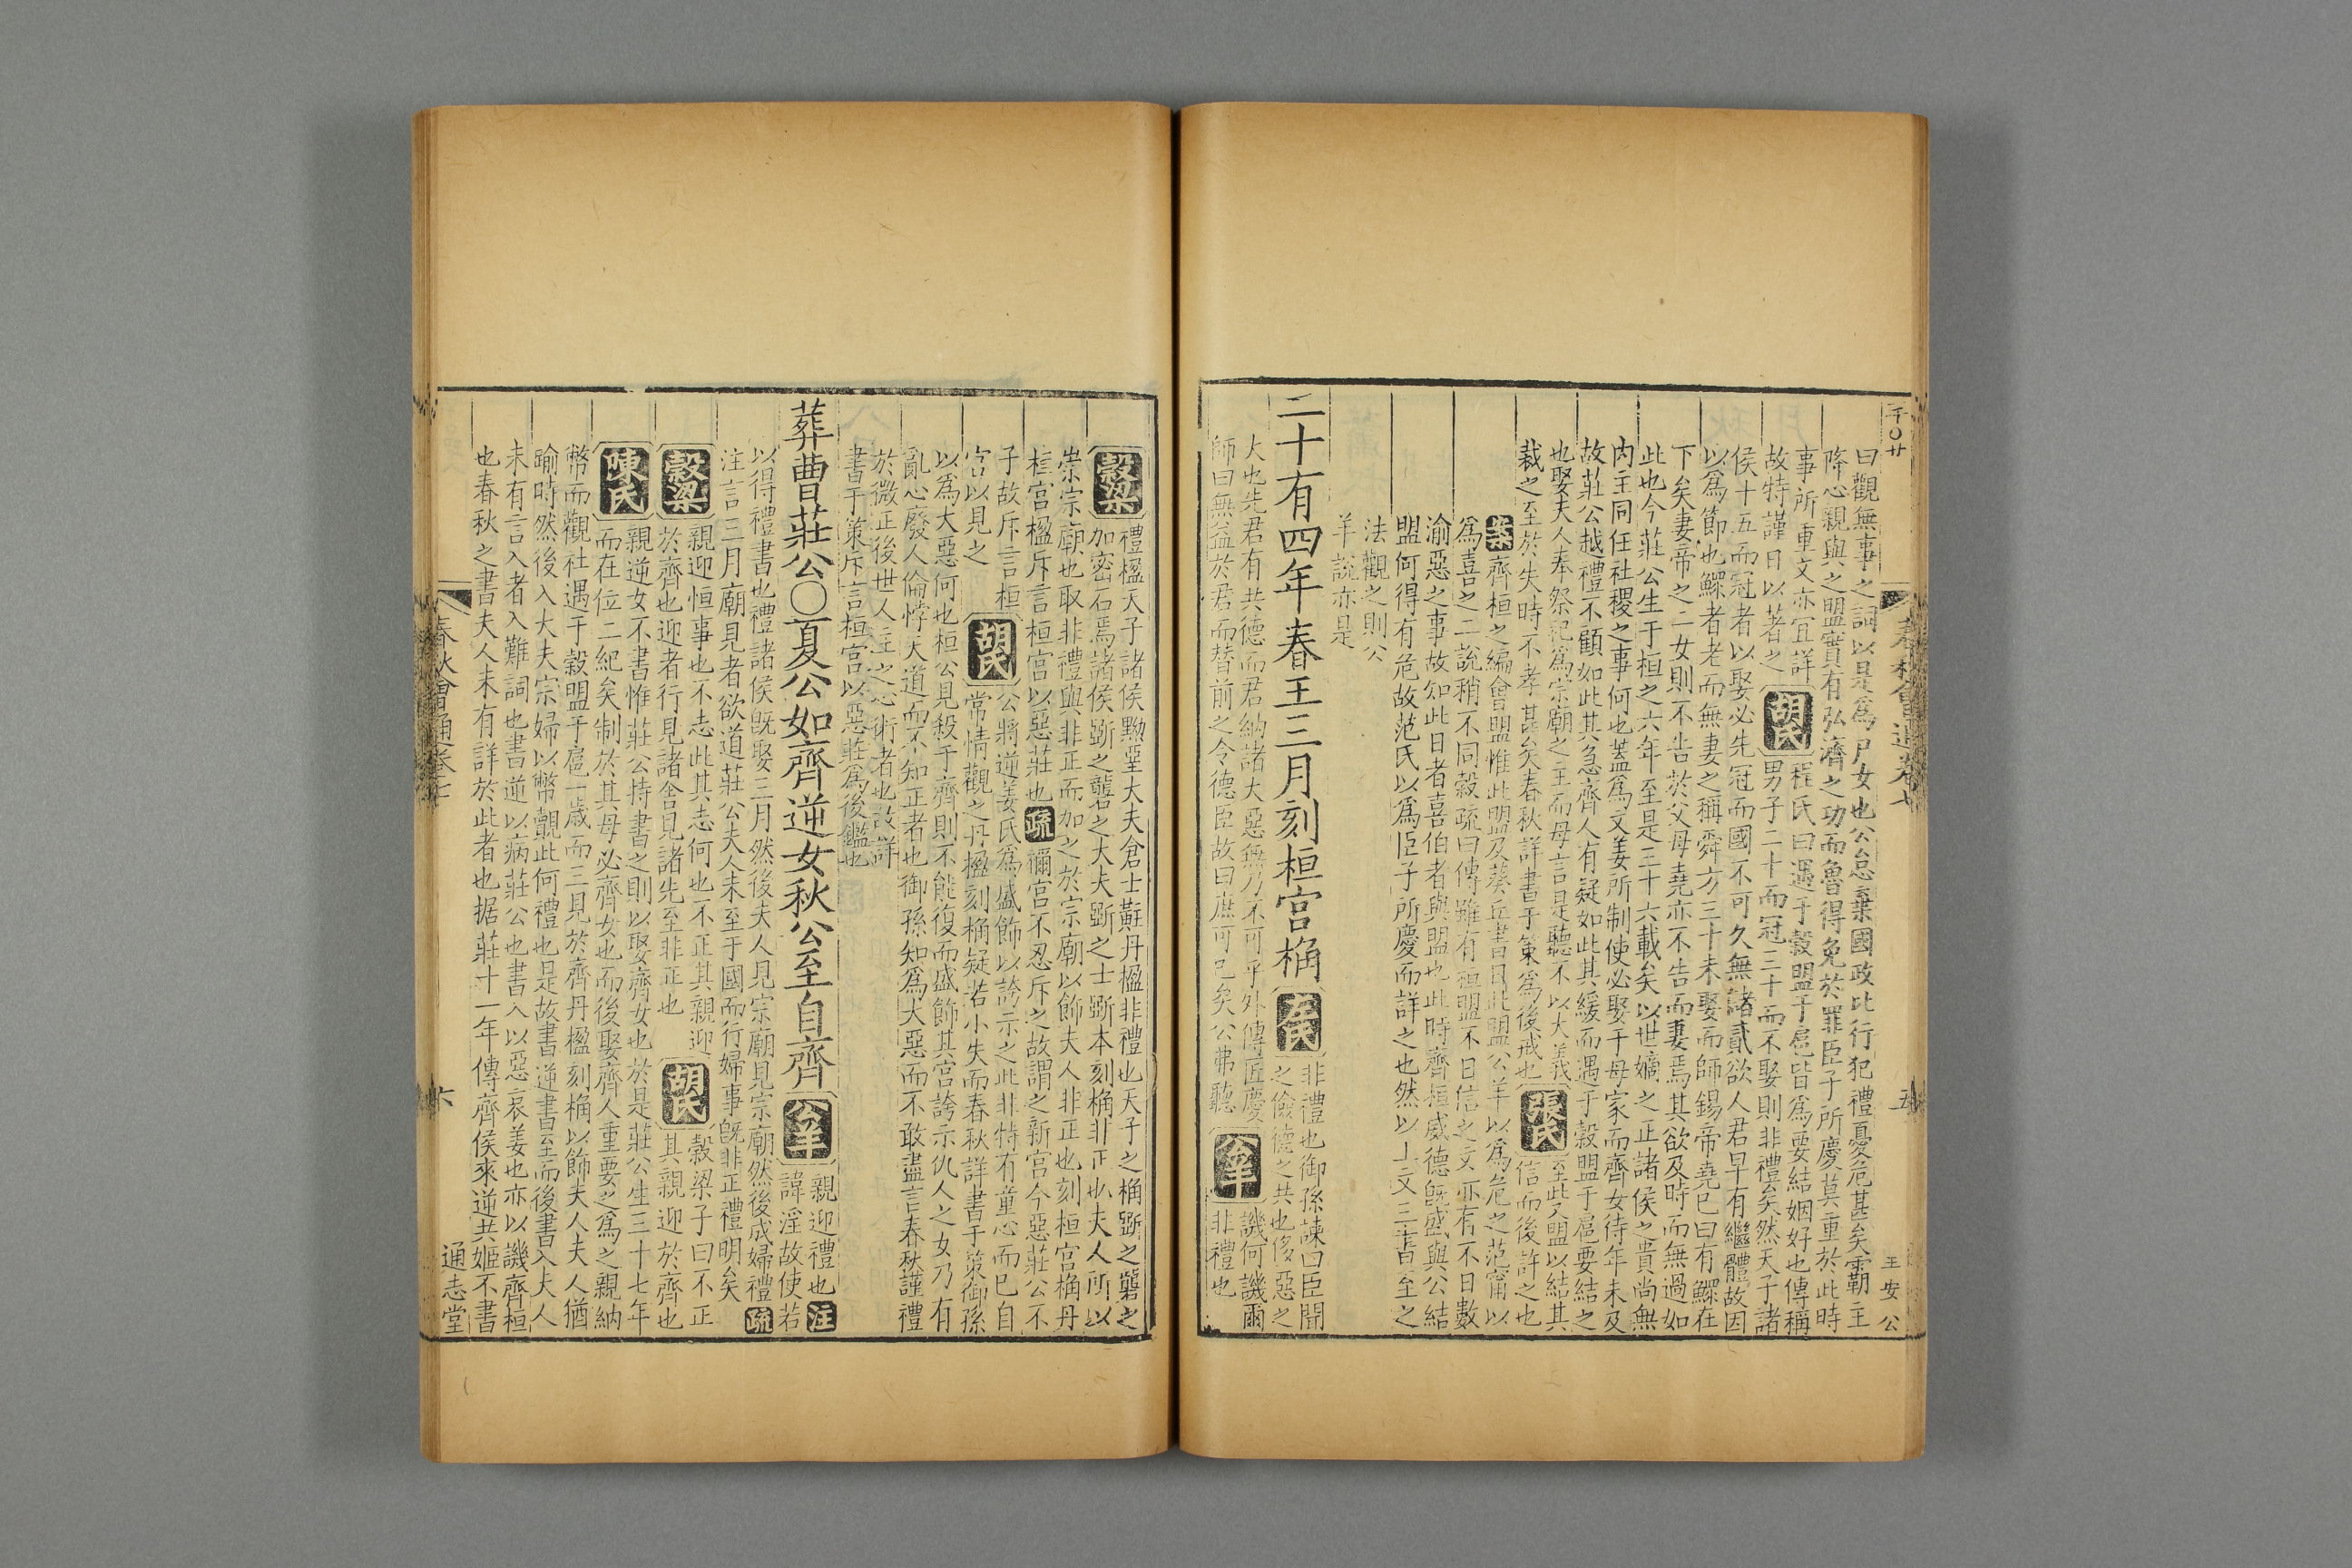 千〇廿
春秋會通卷七
五
王安公
曰觀無事之詞以是爲尸女也公怠棄國政比行犯禮憂危甚矣霸主
降心親與之盟實有弘濟之功而魯得免於罪臣子所慶莫重於此時
事所重文亦宜詳程氏曰遇于穀盟于扈皆爲要結姻好也傳稱
故特謹日以著之胡氏男子二十而冠三十而不娶則非禮矣然天子諸
侯十五而冠者以娶必先冠而國不可久無儲貳欲人君早有繼體故因
以爲節也鰥者老而無妻之稱舜方三十未娶而師錫帝堯已曰有鰥在
下矣妻帝之二女則不告於父母堯亦不告而妻焉其欲及時而無過如
此也今莊公生于桓之六年至是三十六載矣以世嫡之正諸侯之貴尚無
內主同任社稷之事何也蓋爲文姜所制使必娶于母家而齊女待年未及
故莊公越禮不顧如此其急齊人有疑如此其緩而遇于穀盟于扈要結之
也娶夫人奉祭祀爲宗廟之主而母言是聽不以大義至此又盟以結其
裁之至於失時不孝甚矣春秋詳書于策爲後戒也張氏信而後許之也
案齊桓之編會盟惟此盟及葵丘書日此盟公羊以爲危之范甯以
爲喜之二說稍不同穀疏曰傳雖有桓盟不日信之文亦有不日數
渝惡之事故知此日者喜伯者與盟也此時齊桓威德旣盛與公結
盟何得有危故范氏以爲臣子所慶而詳之也然以上文三書至之
法觀之則公
羊說亦是
二十有四年春王三月刻桓宮桷左氏非禮也御孫諫曰臣聞
之儉德之共也侈惡之
大也先君有共德而君納諸大惡無乃不可乎外傳匠慶
師曰無益於君而替前之令德臣故曰庶可已矣公弗聽公羊譏何譏爾
非禮也
穀梁禮楹天子諸侯黝堊大夫倉士黈丹楹非禮也天子之桷斲之礱之
加密石焉諸侯斲之礱之大夫斲之士斲本刻桷非正也夫人所以
崇宗廟也取非禮與非正而加之於宗廟以飾夫人非正也刻桓宮桷丹
桓宮楹斥言桓宮以惡莊也疏禰宮不忍斥之故謂之新宮今惡莊公不
子故斥言桓胡氏公將逆姜氏爲盛飾以誇示之此非特有童心而已自
宮以見之常情觀之丹楹刻桷疑若小失而春秋詳書于策御孫
以爲大惡何也桓公見殺于齊則不能復而盛飾其宮誇示仇人之女乃有
亂心廢人倫悖天道而不知正者也御孫知爲大惡而不敢盡言春秋謹禮
於微正後世人主之心術者也故詳
書于策斥言桓宮以惡莊爲後鑑也
葬曹莊公〇夏公如齊逆女秋公至自齊公羊親迎禮也注
諱淫故使若
以得禮書也禮諸侯旣娶三月然後夫人見宗廟見宗廟然後成婦禮疏
注言三月廟見者欲道莊公夫人未至于國而行婦事旣非正禮明矣
穀梁親迎恒事也不志此其志何也不正其親迎胡氏穀梁子曰不正
於齊也迎者行見諸舍見諸先至非正也其親迎於齊也
陳氏親逆女不書惟莊公特書之則以娶齊女也於是莊公生三十七年
而在位二紀矣制於其母必齊女也而後娶齊人重要之爲之親納
幣而觀社遇于穀盟于扈一歲而三見於齊丹楹刻桷以飾夫人夫人猶
踰時然後入大夫宗婦以幣覿此何禮也是故書逆書至而後書入夫人
未有言入者入難詞也書逆以病莊公也書入以惡哀姜也亦以譏齊桓
也春秋之書夫人未有詳於此者也据莊十一年傳齊侯來逆共姬不書
春秋會通卷七
六
通志堂